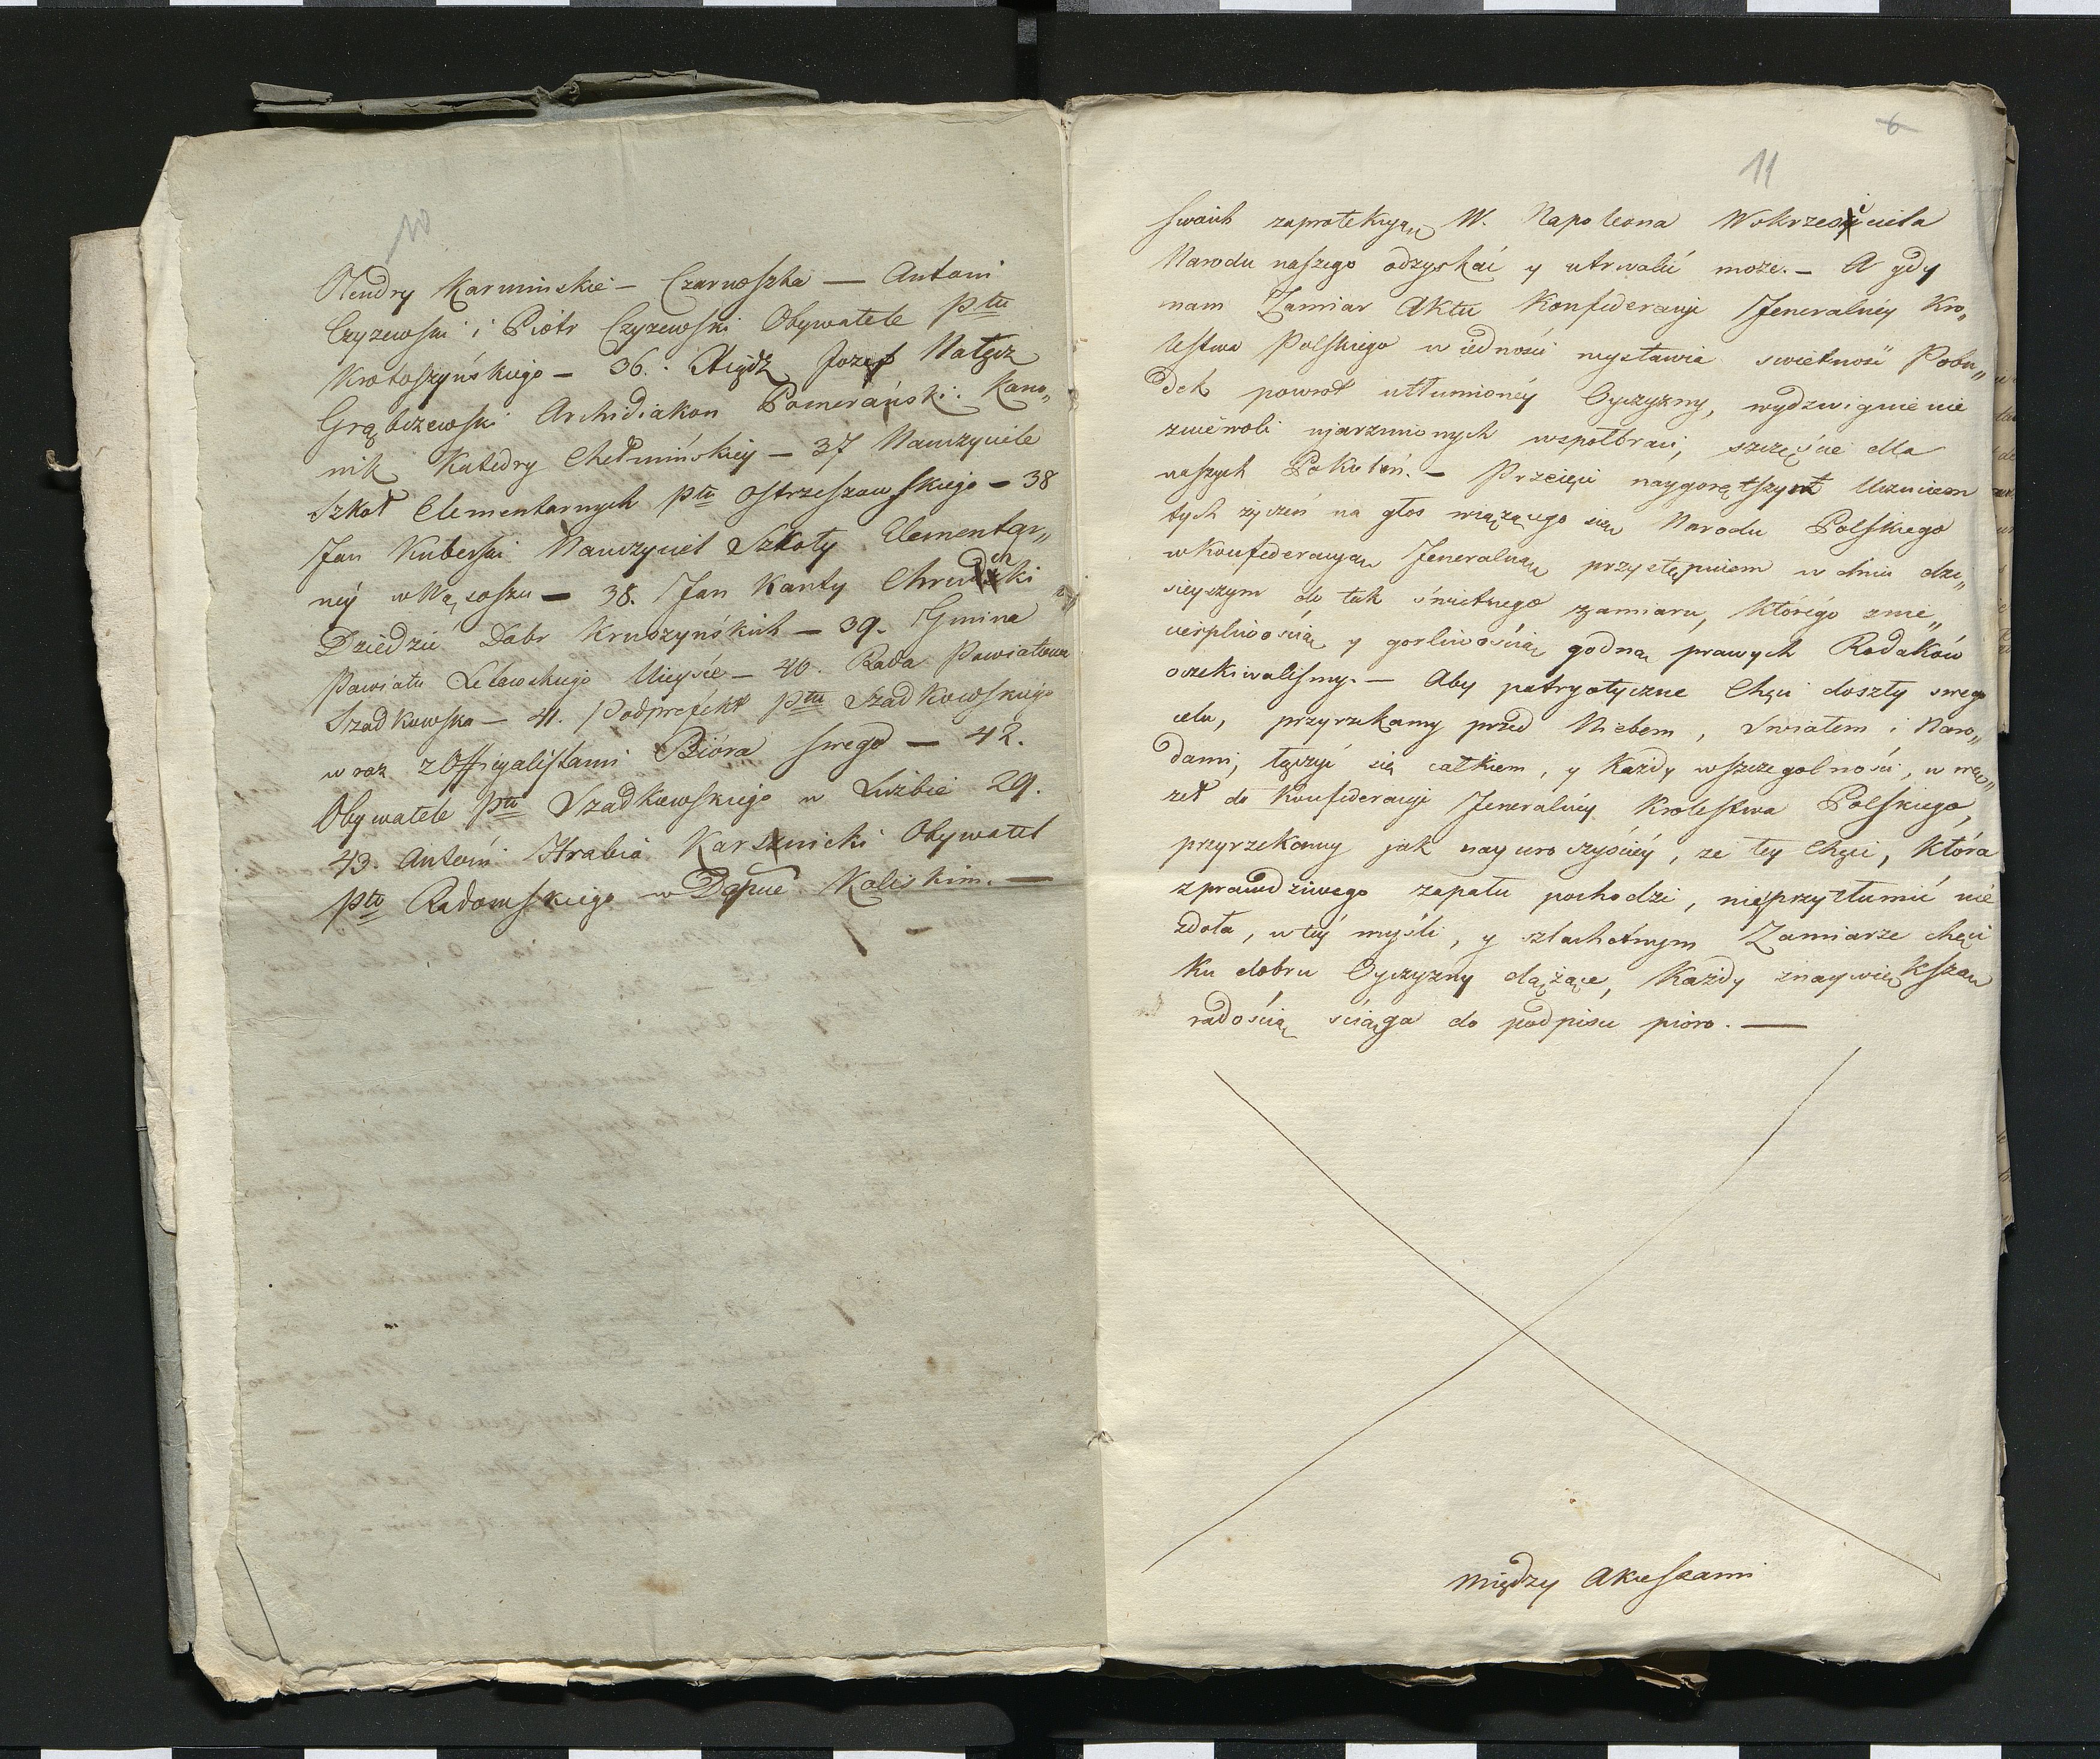 10
Olendry Karminskie — Czarnoszka — Antoni
Czyzewski i Piótr Czyzewski Obywatele Ptu
Krotoszyńskiego — 36. Xiądz Jozef Nałęcz
Grąbczewski Archidiakon Pomerański Kano„
nik Katedry Chełmińskiey — 37 Nauczyciele
Szkoł Elementarnych ptu Ostrzeszowskiego — 38
Jan Kuberski Nauczyciel Szkoły Elementar„
néy w Wąsoszu — 38. Jan Kanty
Dziedzic Dobr Kruszyńskich — 39. Gmina
Powiatu Lelowskiego Mieyście — 40. Rada Powiatowa
Szadkowska — 41. Podprefekt ptu Szadkowskiego
wraz z Officyalistami Bióra swego — 42.
Obywatele ptu Szadkowskiego w Liczbie 29.
43. Antoni Hrabia Karsznicki Obywatel
ptu Radomskiego w Dpcie Kaliskim. —
6
11
swoich zaprotekcyą W. Napoleona Wskrzesiciela
Narodu naszego odzyskać y utrwalić może. — A gdy
nam Zamiar Aktu Konfederacyi Jeneralnéy Kro„
lestwa Polskiego w iedności wystawia swietność Pobu„
dek powrot utłumionéy Oyczyzny, wydzwignienie
zniewoli ujarzmionych wspołbraci, szczęście dla
naszych Pokoleń. — Przeięci naygorętszym Uczuciem
tych życzeń na głos wiążącego się Narodu Polskiego
w Konfederacyą Jeneralną przystępuiem w dniu dzi„
sieyszym do tak świetnego zamiaru, którégo znie„
cierpliwością y gorliwością godną prawych Rodaków
oczekiwalismy. — Aby patryotyczne Chęci doszły swego
celu, przyrzekamy przed Niebem, Swiatem i Naro„
dami, łączyć się całkiem, y Każdy wszczegolności, w wę„
zeł do Konfederacyi Jeneralnéy Krolestwa Polskiego,
przyrzekamy jak nayuroczyściéy, ze tey Chęci, Która
zprawdziwego zapału pochodzi, nic przytłumić nie
zdoła, w téy myśli, y szlachetnym Zamiarze chęci
Ku dobru Oyczyzny dążące, Każdy znaywiększą
radością ściąga do podpisu pióro. —
między Akcessami